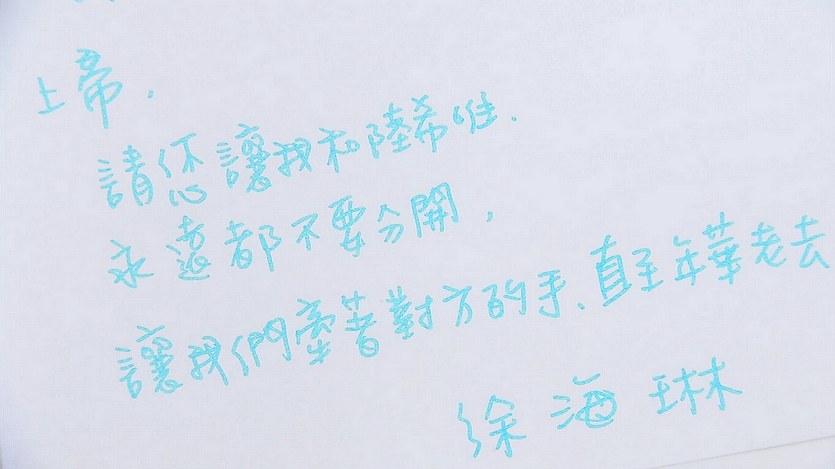 上帝,
請您讓我和陸希唯.
永遠都不要分開,
讓我們牽著對方的手、直至年華老去
徐海琳